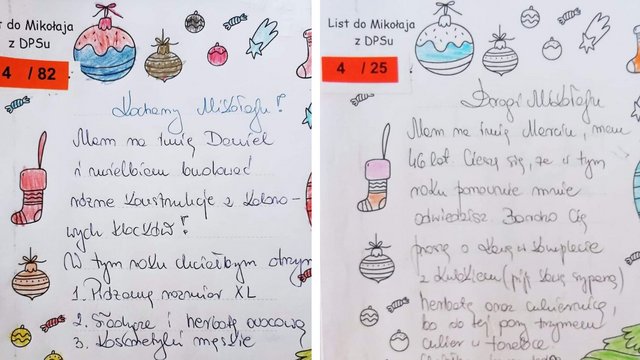 t do Mikołaja
z DPSu
4 / 82
Kochany Mikołaju!
Mam na imię Daniel
i uwielbiam budować
różne konstrukcje z koloro-
wych klocków!
W tym roku chciałbym otrzym
1. Pidżamę rozmiar XL
2. Słodycze i herbatę owocową
3. Kosmetyki męskie
List do Mikołaja
z DPSu
4 / 25
Drogi Mikołaju
Mam na imię Marcin, mam
46 lat. Cieszę się, że w tym
roku ponownie mnie
odwiedzisz. Bardzo Cię
proszę o kawę w komplecie
z kubkiem (piję kawę sypaną)
herbatę oraz cukiernicę,
bo do tej pory trzymam
cukier w torebce